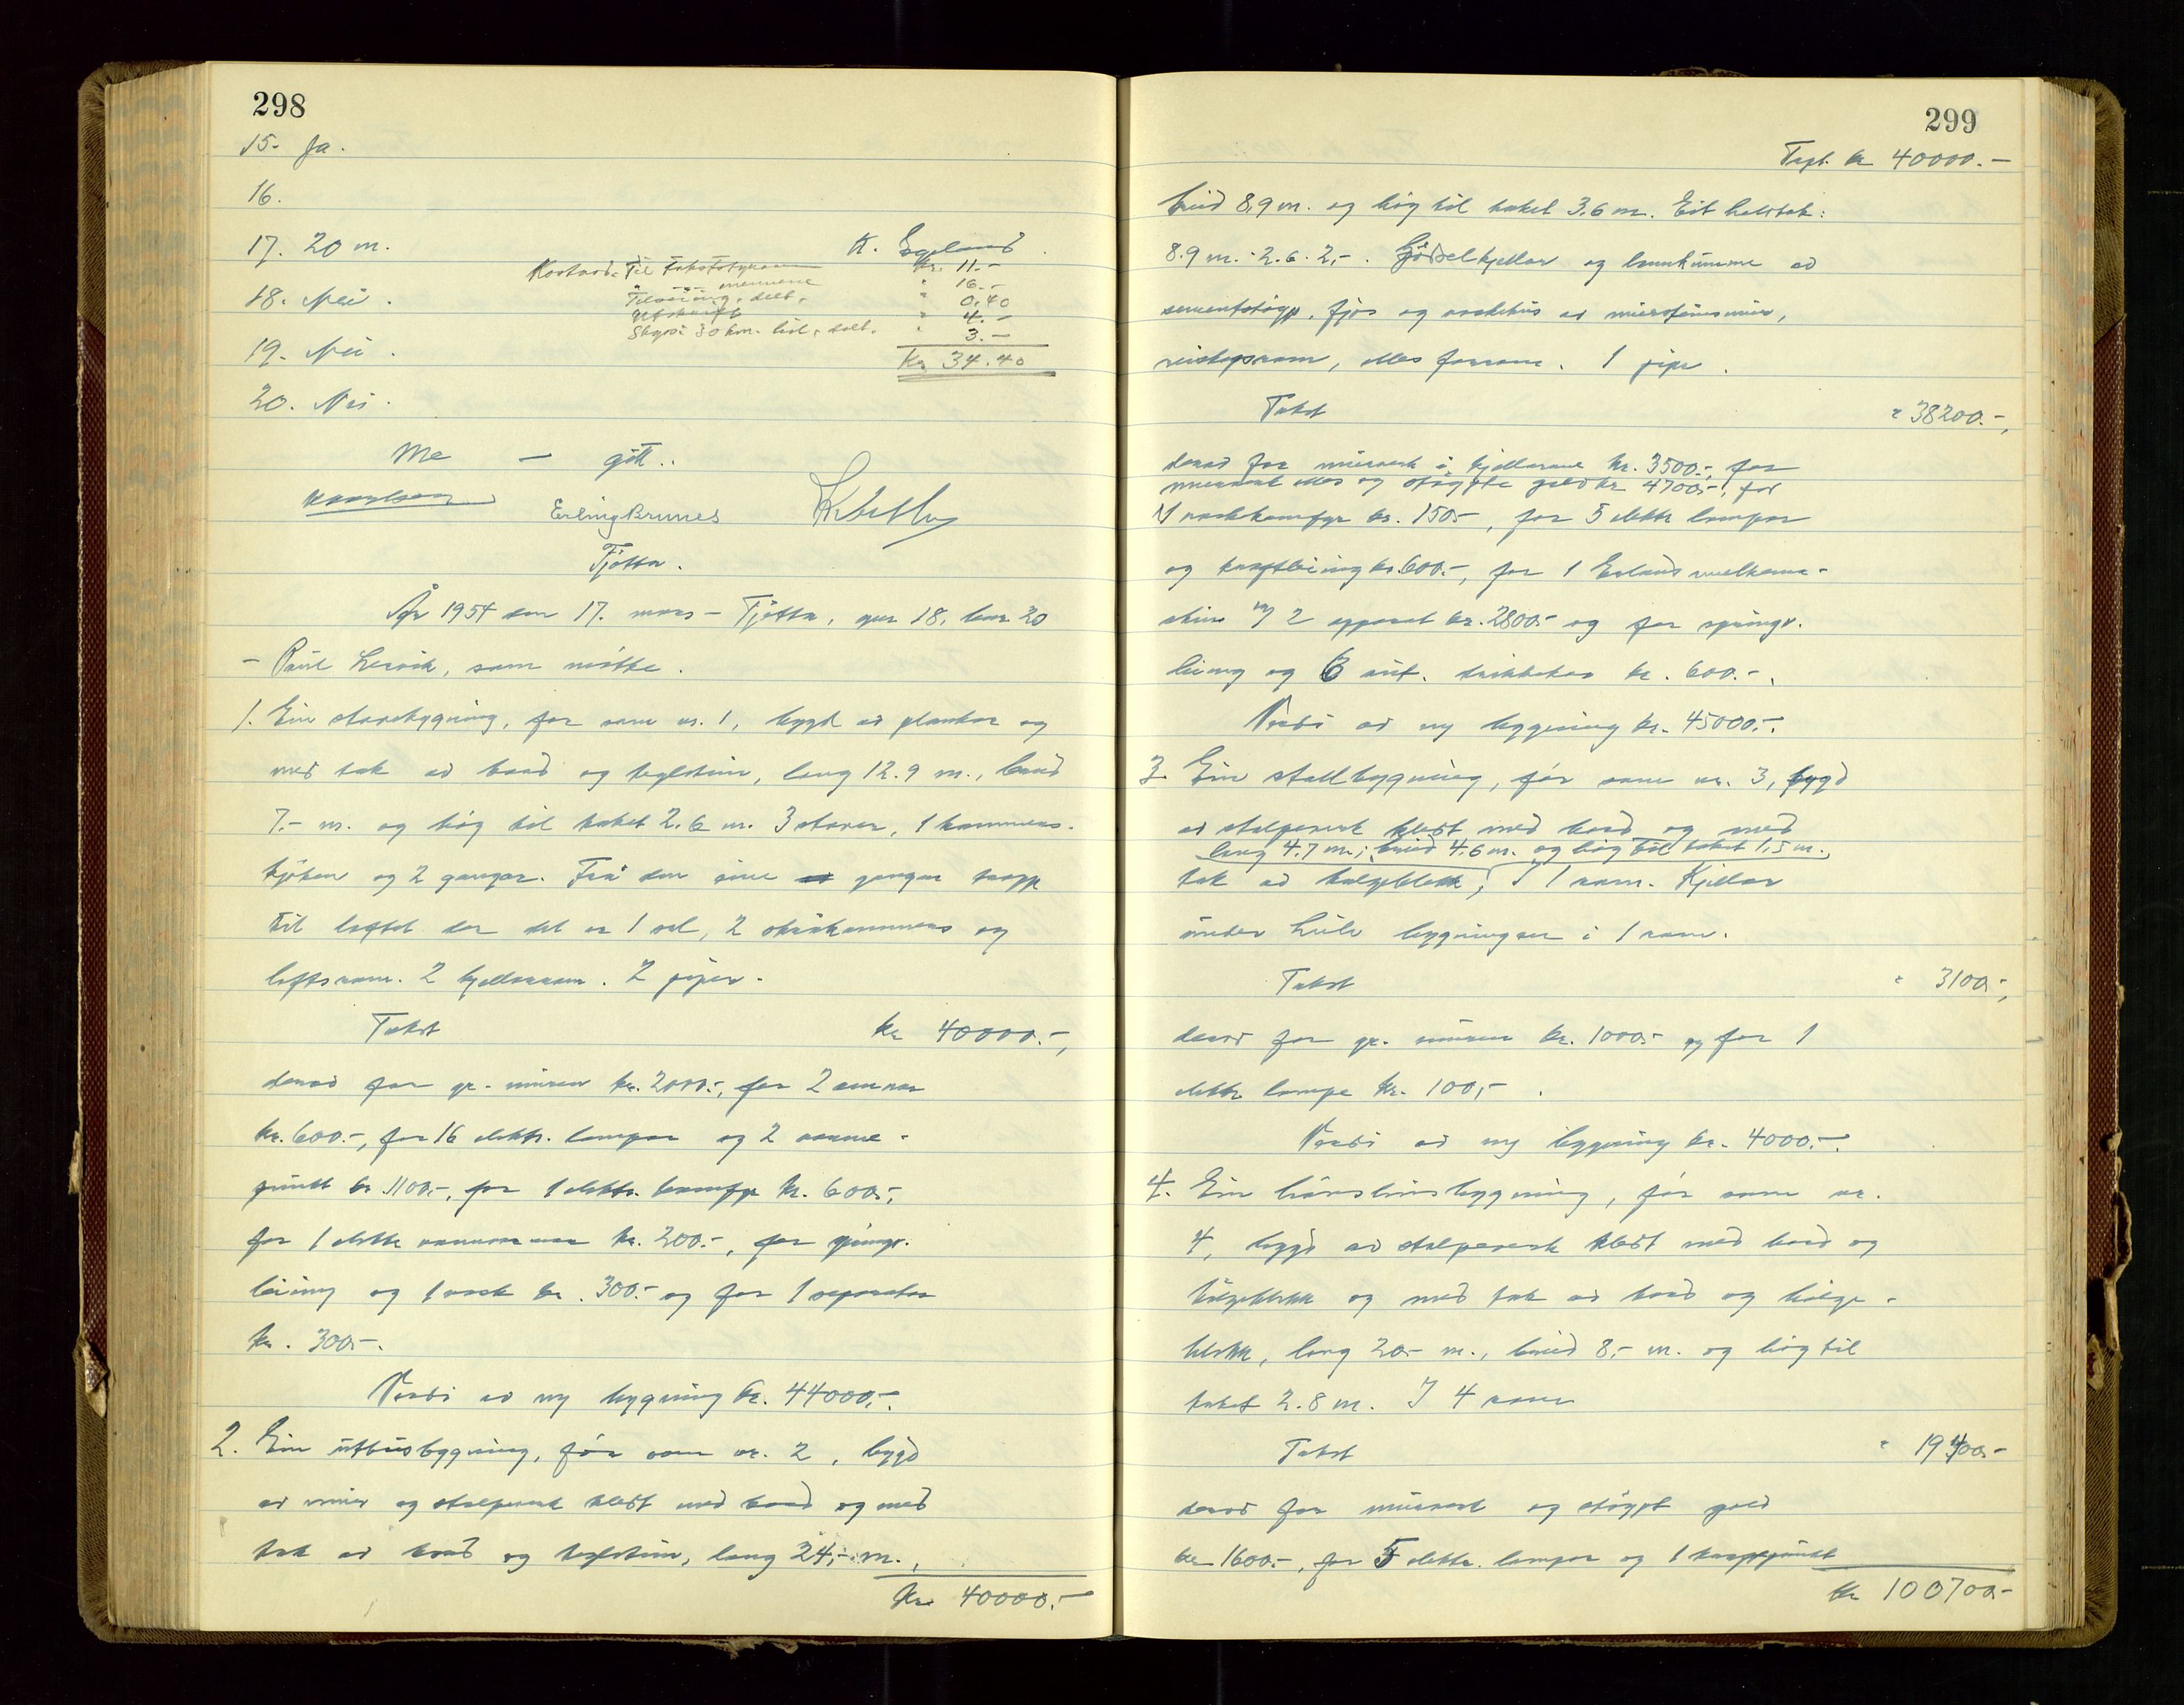 298
15. Ja.
16.
17. 20 m. K. Egeland
Kostnad: Til takststyraren kr. 11.-
" — mennene " 16.-
18. Nei. Tilseiing, delt, " 0,40
Utskrift " 4.-
Skyss 30 km. tid, delt. " 3.-
19. Nei. Kr 34.40
20. Nei.
Me — gitt..
Erling Brunes
Tjøtta.
År 1954 den 17. mars - Tjøtta, gnr 18, bnr 20
- Paul Lervik, som møtte.
1. Ein stovebygning, før som nr. 1, bygd av plankar og
med tak av bord og teglstein, lang 12.9 m., breid
7.- m. og høg til taket 2.6 m. 3 stover, 1 kammers.
kjøken og 2 gangar. Frå den eine gangen trapp
til loftet der det er 1 sal, 2 skråkammers og
loftsrom. 2 kjellarrom. 2 piper.
Takst kr 40000.-,
derav for gr. muren kr. 2000.-, for 2 omnar
kr. 600.-, for 16 elektr. lampor og 2 varme-
punkt kr 1100.-, for 1 elektr. komfyr kr. 600,-,
for 1 elektr. kr. 200.-, for springv.
leiing og 1 vask kr. 300.- og for 1 separator
kr. 300.-.
Verdi av ny bygning kr. 44000,-.
2. Ein uthusbygning, før som nr. 2, bygd
av mur og stolpeverk kledt med bord og med
tak av bord og teglstein, lang 24,- m.,
Kr 40000.-
299
Tapt. kr 40000.-
breid 8,9 m. og høg til taket 3.6 m. Eit halvtak:
8.9 m. · 2.6 · 2,-. Gjødselkjellar og landkumme av
sementstøyp, fjøs og vaskehus av mursteinsmur,
reistogsrom, elles forrom. 1 pipe.
Takst " 38200.-,
derav for murverk i kjellarane kr. 3500.-, for
murverk elles og støypte golv kr 4700.-, for
1 vaskekomfyr kr. 150.-, for 5 elektr. lampor
og kraftleiing kr. 600.-, for 1 Erlands mjelkema-
skin m/ 2 apparat kr. 2800.- og for springv.
leiing og 6 aut. drikkekar kr. 600.-.
Verdi av ny bygning kr. 45000.-.
3. Ein stallbygning, før som nr. 3, bygd
av stolpeverk kledt med bord og med
lang 4.7 m., breid 4,6 m. og høg til taket 1,5 m.,
tak av bølgeblekk, I 1 rom. Kjellar
under heile bygningen i 1 rom.
Takst " 3100.-,
derav for gr. muren kr. 1000.- og for 1
elektr. lampe kr. 100,-.
Verdi av ny bygning kr. 4000.-.
4. Ein hønsehusbygning, før som nr.
4, bygd av stolpeverk kledt med bord og
bølgeblekk og med tak av bord og bølge-
blekk, lang 20.- m., breid 8,- m. og høg til
taket 2.8 m. I 4 rom
Takst " 19400.-
derav for murverk og støypt golv
kr 1600.-, for 5 elektr. lampor og 1 kraftpunkt
kr 100700.-